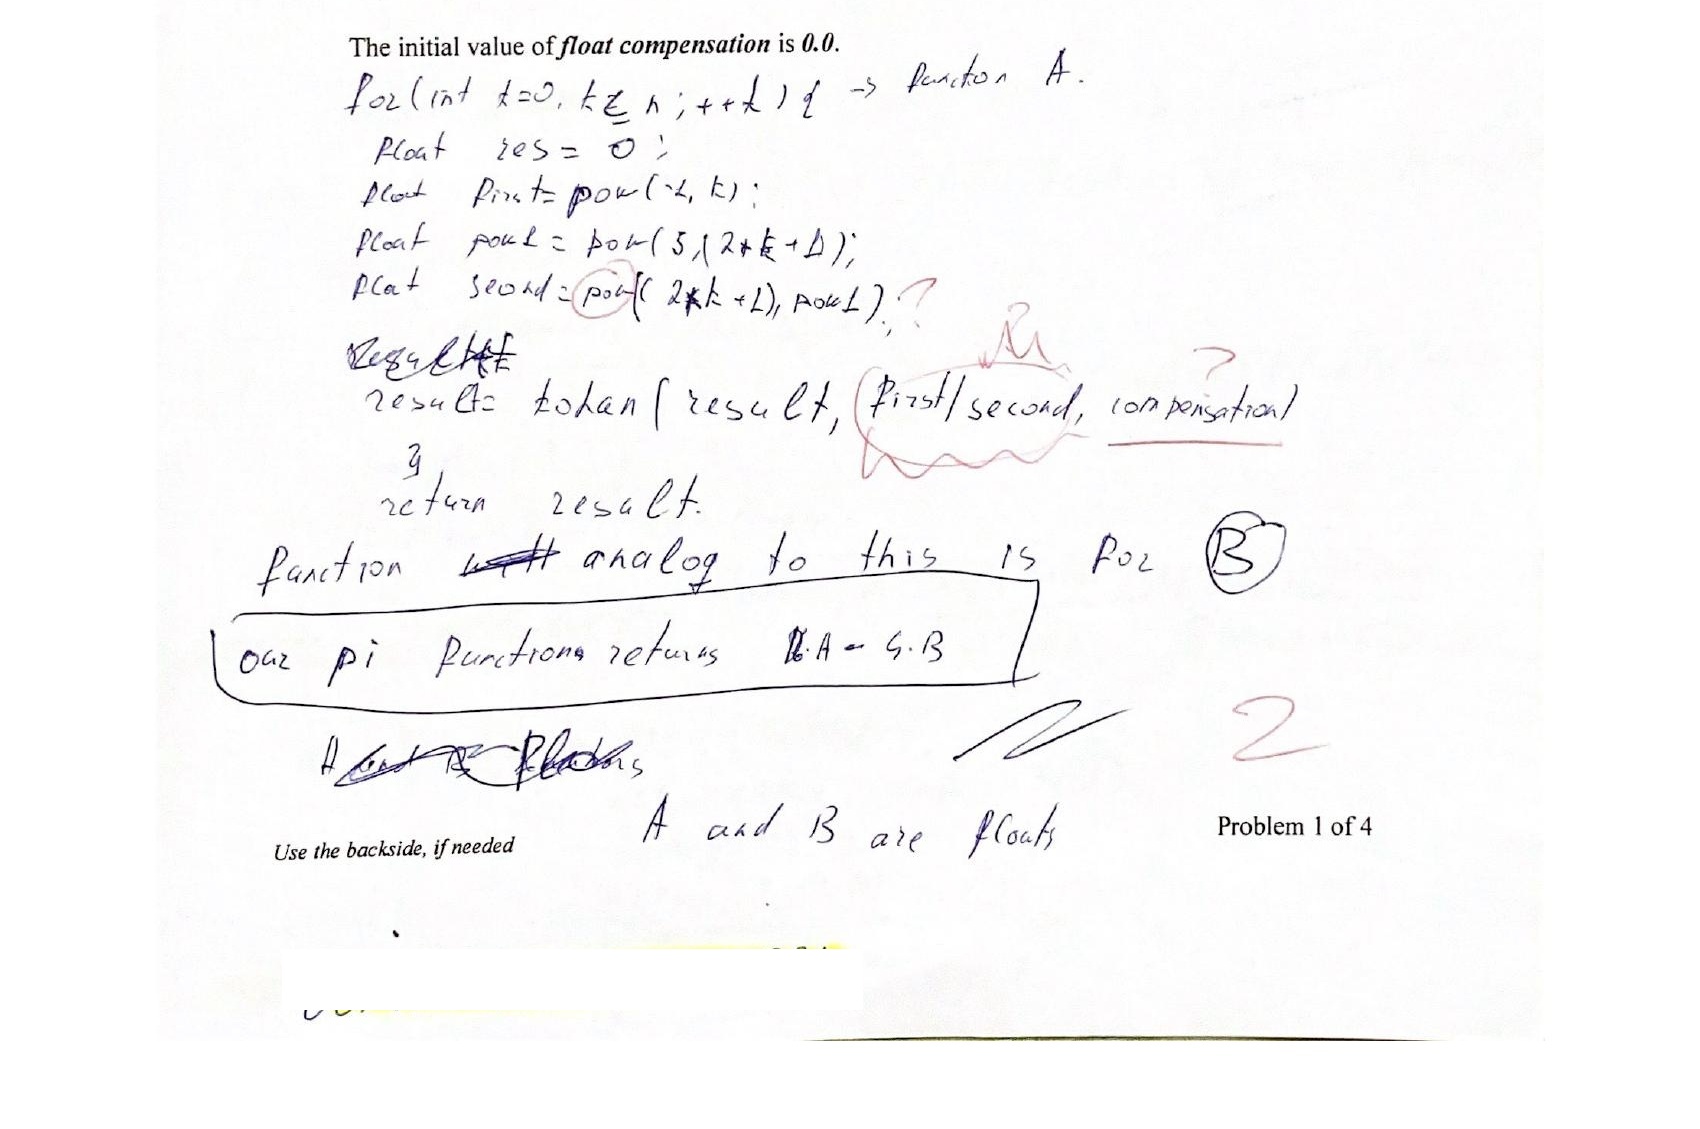 The initial value of float compensation is 0.0.
for(int k=0, k≤ n; ++k) { -> function A.
float res = 0;
float first= pow(-1, k);
float pow1 = pow(5,(2*k+1);
float second= pow((2*k+1), pow1). ?
result= kohan(result, first/second, compensation)
?
}
return result.
function analog to this is for B
our pi functions returns A - 4.B
2
A and B are floats
Use the backside, if needed
Problem 1 of 4